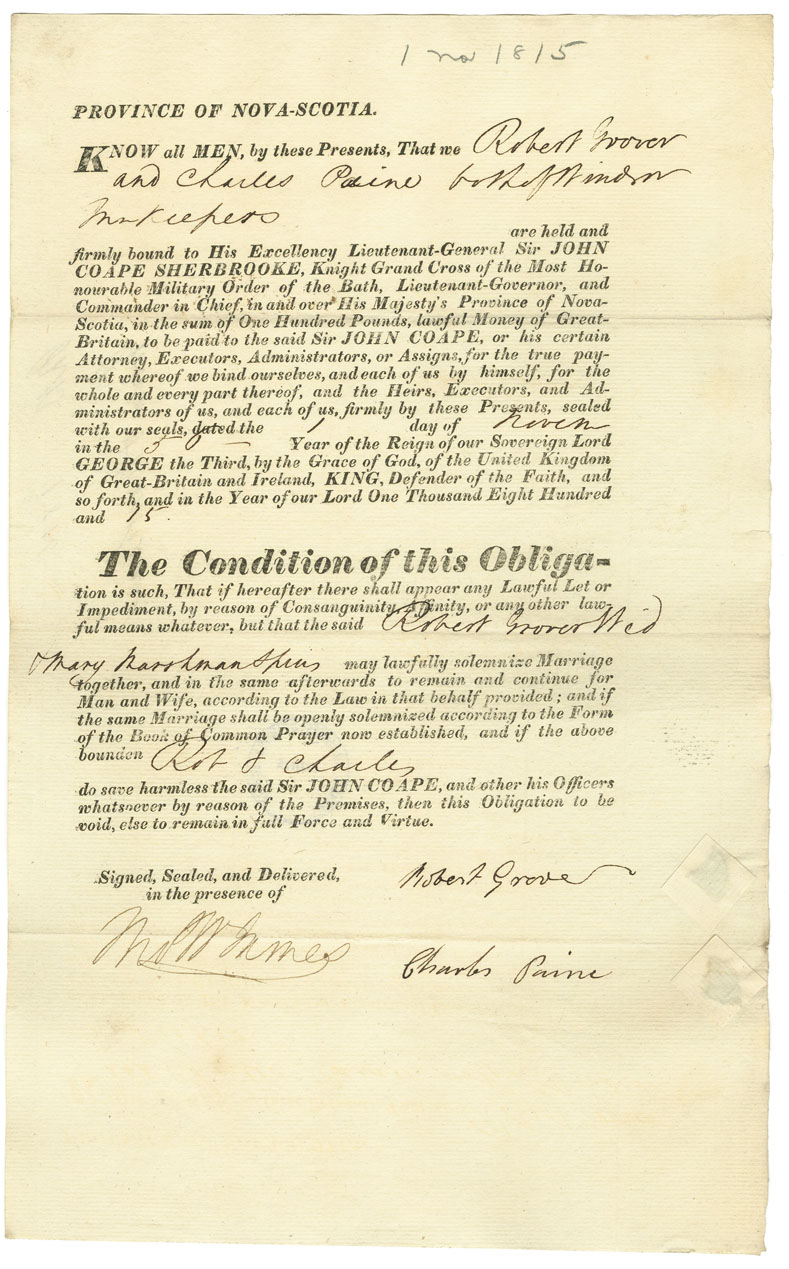 1 Nov 1815
PROVINCE OF NOVA-SCOTIA.
KNOW all MEN, by these Presents, That we Robert Grover
and Charles Paine both of Windsor
Innkeepers
are held and
firmly bound to His Excellency Lieutenant-General Sir JOHN
COAPE SHERBROOKE, Knight Grand Cross of the Most Ho-
nourable Military Order of the Bath, Lieutenant-Governor, and
Commander in Chief, in and over His Majesty's Province of Nova-
Scotia, in the sum of One Hundred Pounds, lawful Money of Great-
Britain, to be paid to the said Sir JOHN COAPE, or his certain
Attorney, Executors, Administrators, or Assigns, for the true pay-
ment whereof we bind ourselves, and each of us by himself, for the
whole and every part thereof, and the Heirs, Executors, and Ad-
ministrators of us, and each of us, firmly by these Presents, sealed
with our seals, dated the 1 day of Novem
in the 50 Year of the Reign of our Sovereign Lord
GEORGE the Third, by the Grace of God, of the United Kingdom
of Great-Britain and Ireland, KING, Defender of the Faith, and
so forth, and in the Year of our Lord One Thousand Eight Hundred
and 15.
The Condition of this Obliga-
tion is such, That if hereafter there shall appear any Lawful Let or
Impediment, by reason of Consanguinity, Affinity, or any other law-
ful means whatever, but that the said Robert Grover Wid
& Mary Marshman Spins may lawfully solemnize Marriage
together, and in the same afterwards to remain and continue for
Man and Wife, according to the Law in that behalf provided; and if
the same Marriage shall be openly solemnized according to the Form
of the Book of Common Prayer now established, and if the above
bounden Rob & Charles
do save harmless the said Sir JOHN COAPE, and other his Officers
whatsoever by reason of the Premises, then this Obligation to be
void, else to remain in full Force and Virtue.
Signed, Sealed, and Delivered,
in the presence of
Robert Grover
James
Charles Paine